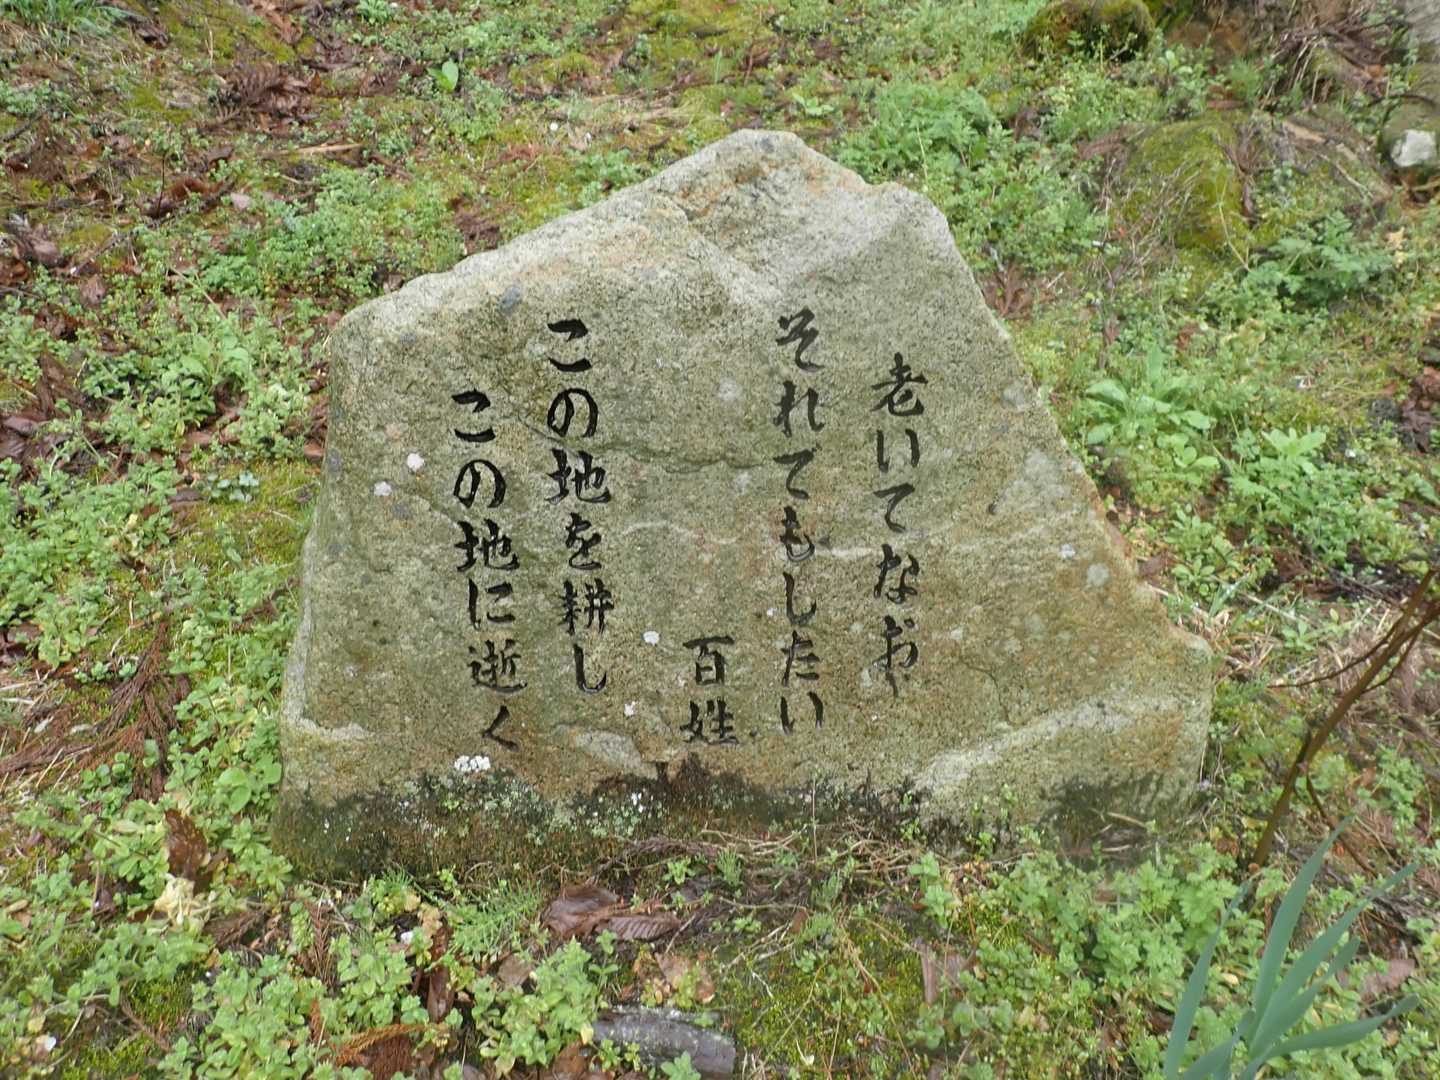 老いてなお
それでもしたい
百姓
この地を耕し
この地に逝く